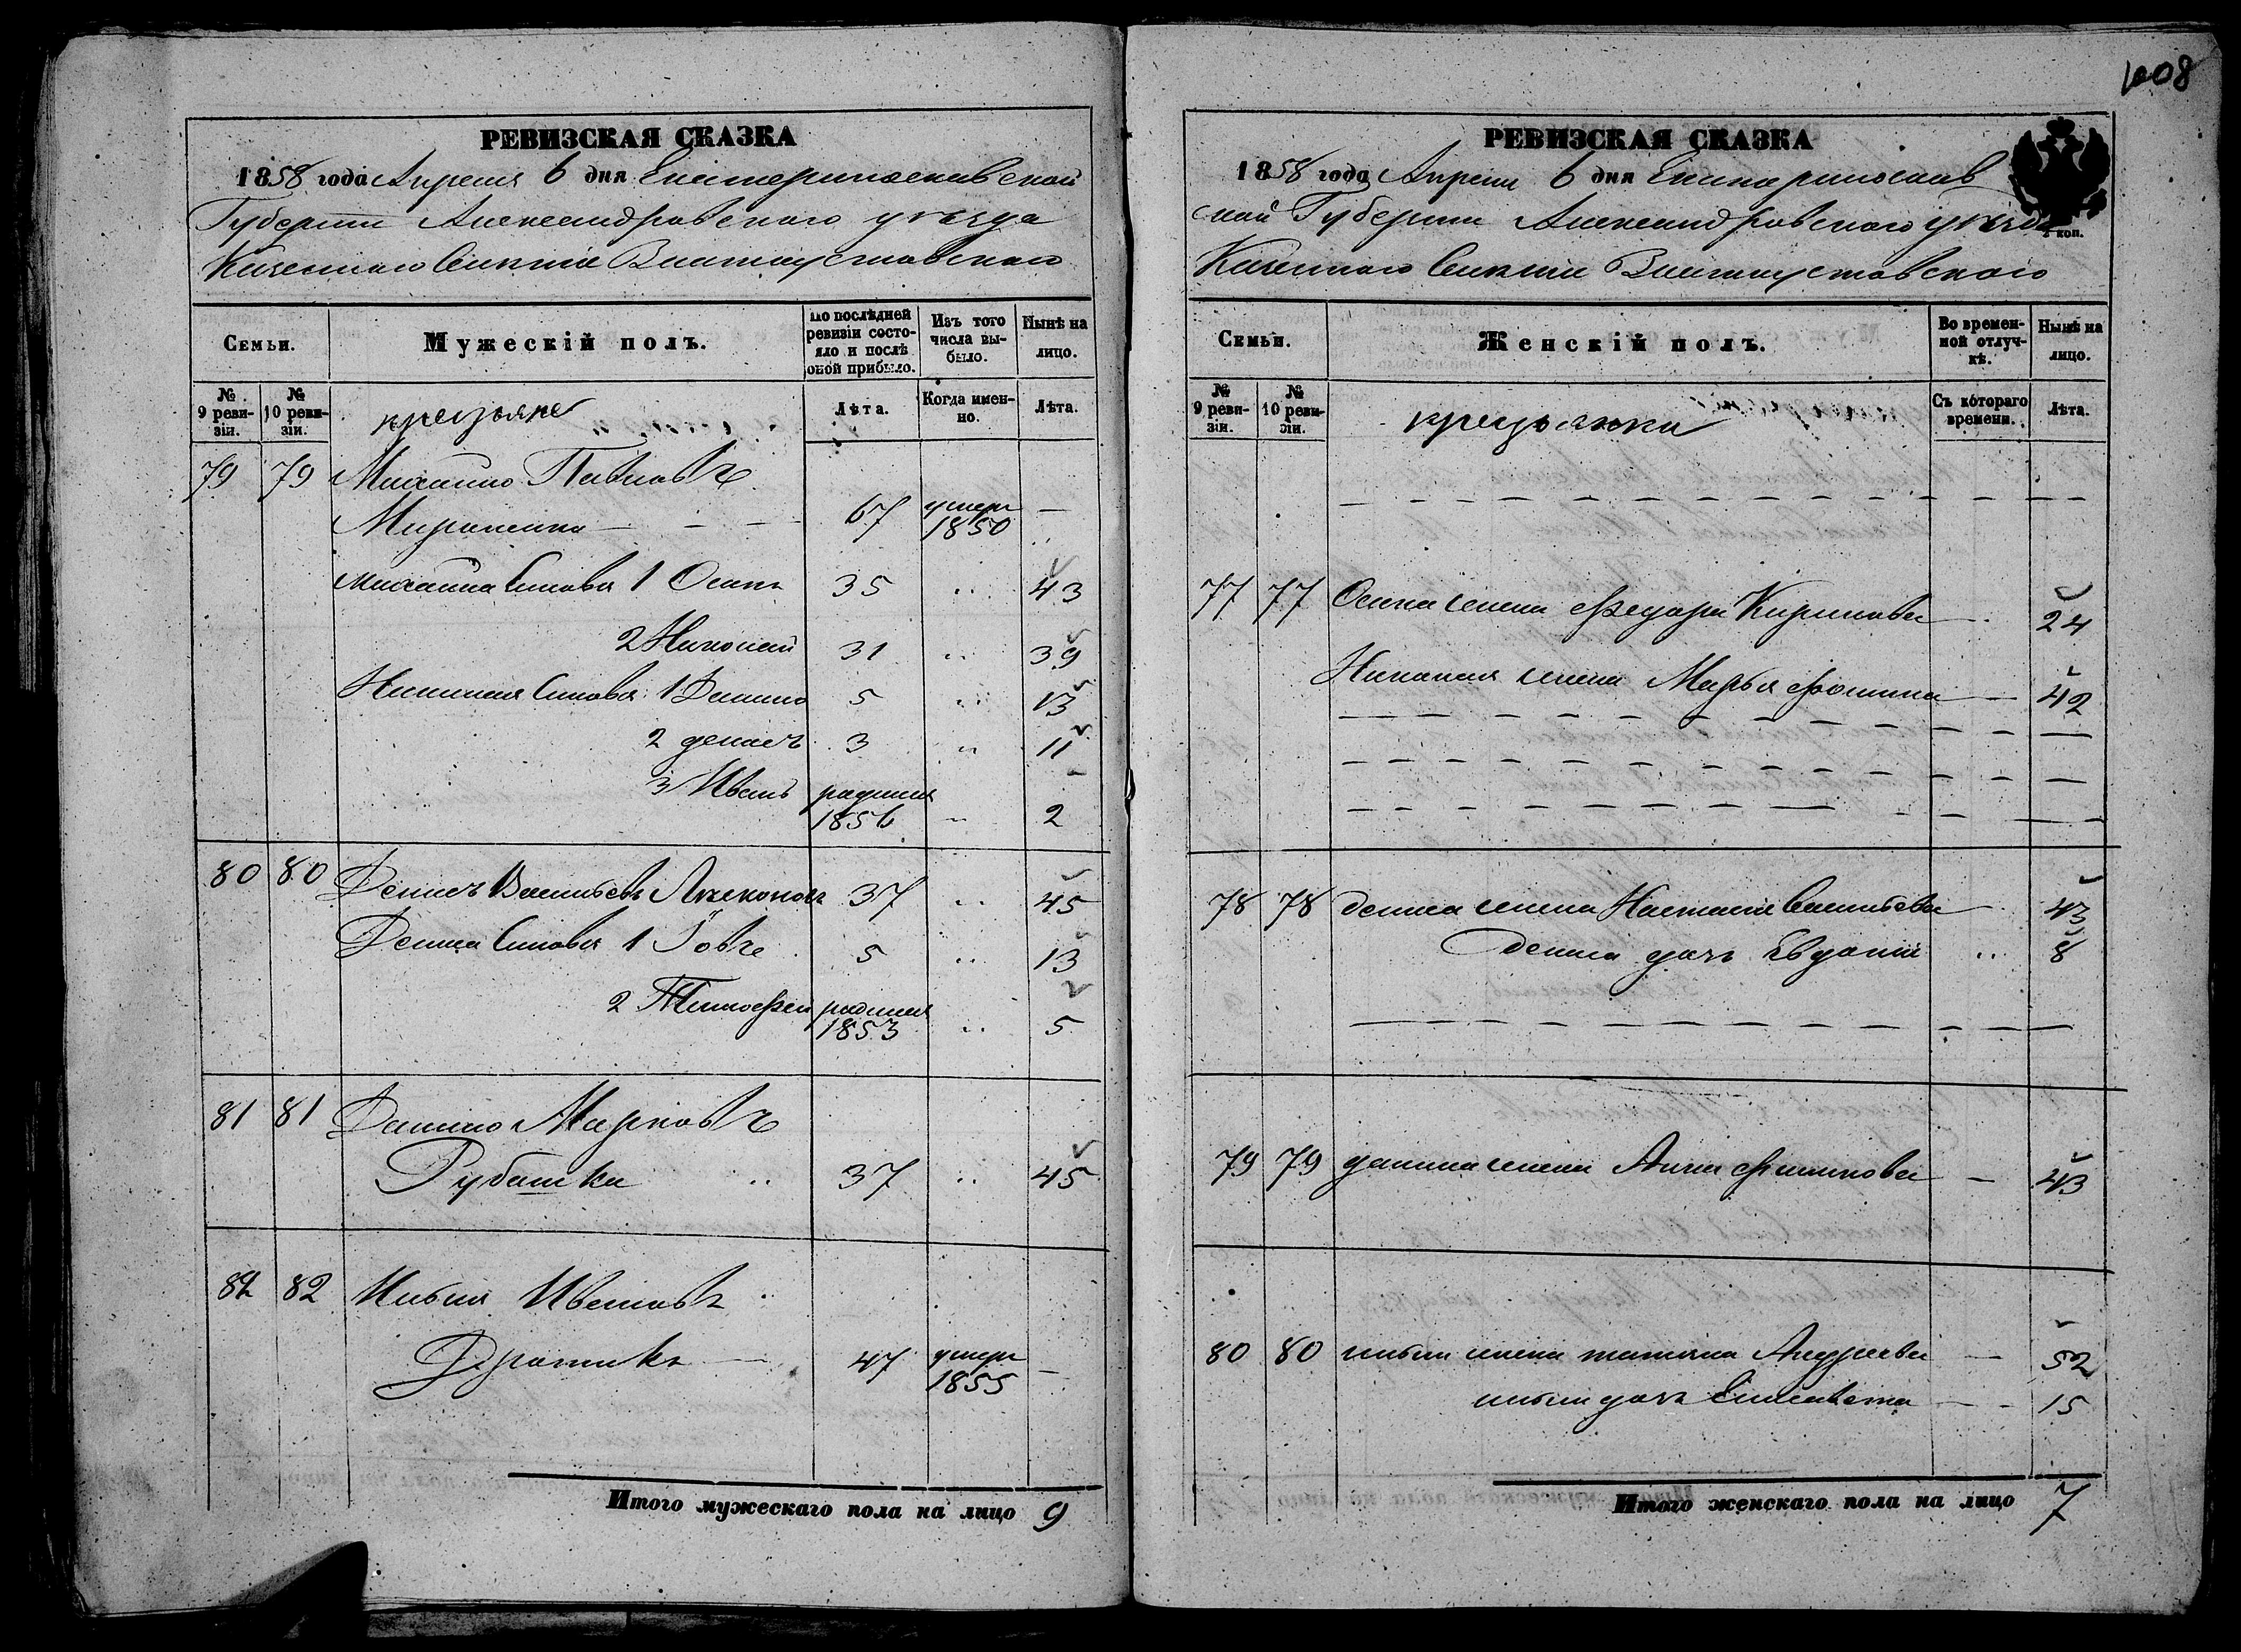 1008
РЕВИЗСКАЯ СКАЗКА
1858 года Апреля 6 дня Екатеринославской
Губернии Александровского уезда
Казенного Селения
Семьи.
Мужескій полъ.
По послѣдней ревизіи состояло и послѣ оной прибыло.
Изъ того числа выбыло.
Нынѣ на лицо.
№ 9 ревизіи.
№ 10 ревизіи.
крестьяне
Лѣта.
Когда именно.
Лѣта.
79 79 Михайло Павловъ
Мироненко 67 умеръ 1850 —
Михайла Сыновья 1 Осипъ 35 " 43
2 Николай 31 " 39
Николая Сыновья 1 Данило 5 " 13
2 Денисъ 3 " 11
3 Иванъ родился 1856 " 2
80 80 Денисъ Васильевъ 37 " 45
Дениса Сыновья 1 5 " 13
2 Тимофей родился 1853 " 5
81 81 Данило Марковъ
Рубашка 37 " 45
82 82 Илья Ивановъ
47 умеръ 1855 —
Итого мужескаго пола на лицо 9
РЕВИЗСКАЯ СКАЗКА
1858 года Апреля 6 дня Екатеринослав
ской Губернии Александровского уезда
Казенного Селения
коп.
Семьи.
Женскій полъ.
Во временной отлучкѣ.
Нынѣ на лицо.
№ 9 ревизіи.
№ 10 ревизіи.
крестьянки
Съ котораго времени.
Лѣта.
77 77 Осипа жена Федора Кирилова 24
Николая жена Марья Фомина — 42
78 78 Дениса жена Настасія Васильева 43
Дениса дочь Евдокія " 8
79 79 Данила жена Анна Филипова — 43
80 80 Ильи жена Татьяна Андреева — 52
Ильи дочь Елисавета — 15
Итого женскаго пола на лицо 7